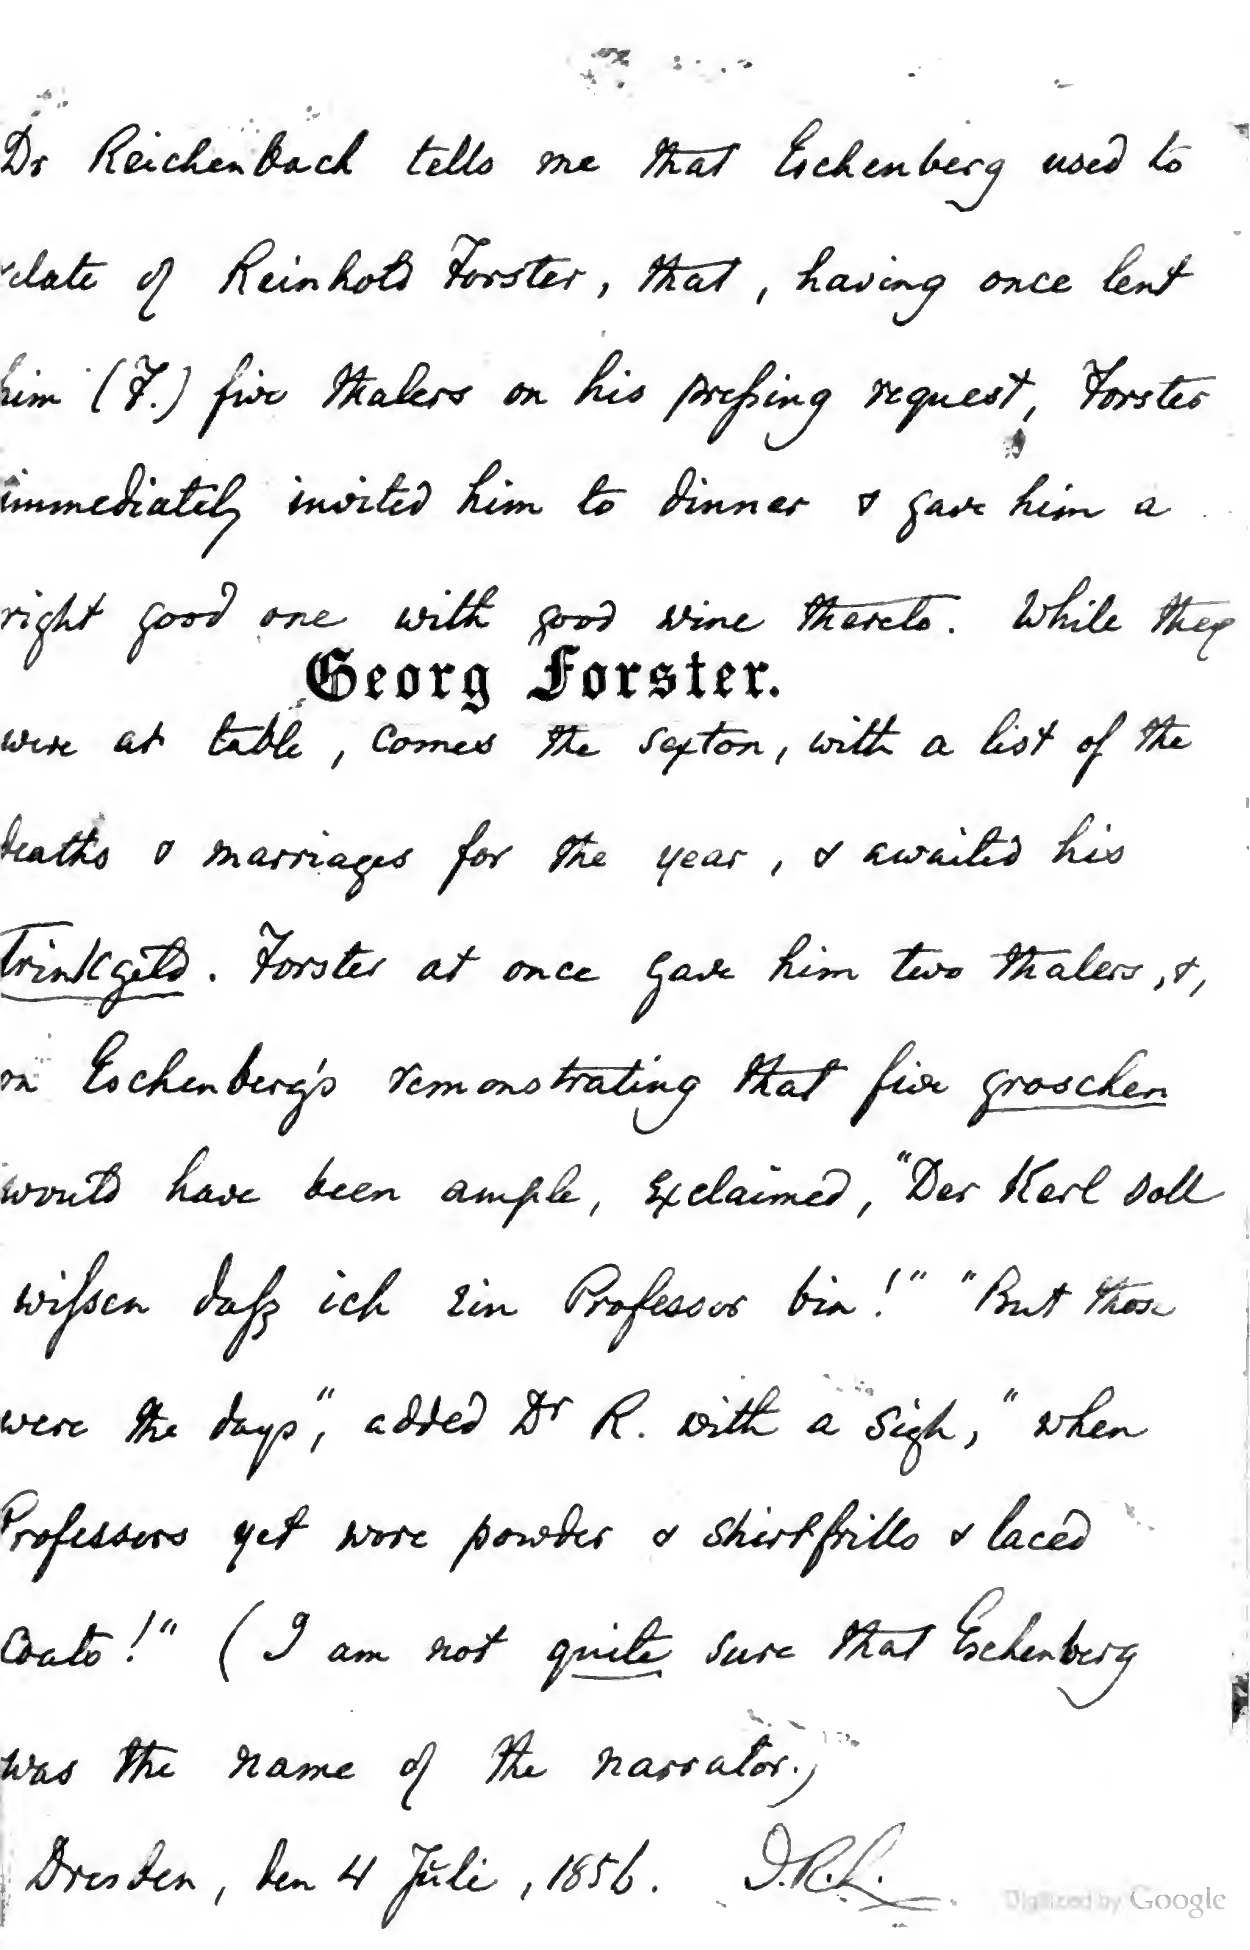 Dr Reichenbach tells me that Eschenberg used to
relate of Reinhold Forster, that, having once lent
him (F.) five thalers on his preſsing request, Forster
immediately invited him to dinner & gave him a
right good one with good wine thereto. While they
Georg Forster.
were at table, comes the sexton, with a list of the
deaths & marriages for the year, & awaited his
Trinkgeld. Forster at once gave him two thalers, &,
on Eschenberg's remonstrating that five groschen
would have been ample, exclaimed, "Der Kerl soll
wiſsen daſz ich ein Professor bin!" "But those
were the days", added Dr R. with a sigh, "when
Professors yet wore powder & shirtfrills & laced
coats!" (I am not quite sure that Eschenberg
was the name of the narrator.)
Dresden, den 4 Juli, 1856. J.R.L.
Digitized by Google